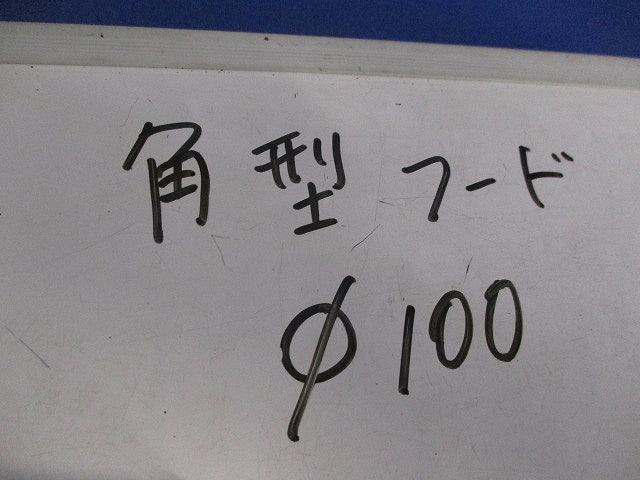 角型フード
φ100